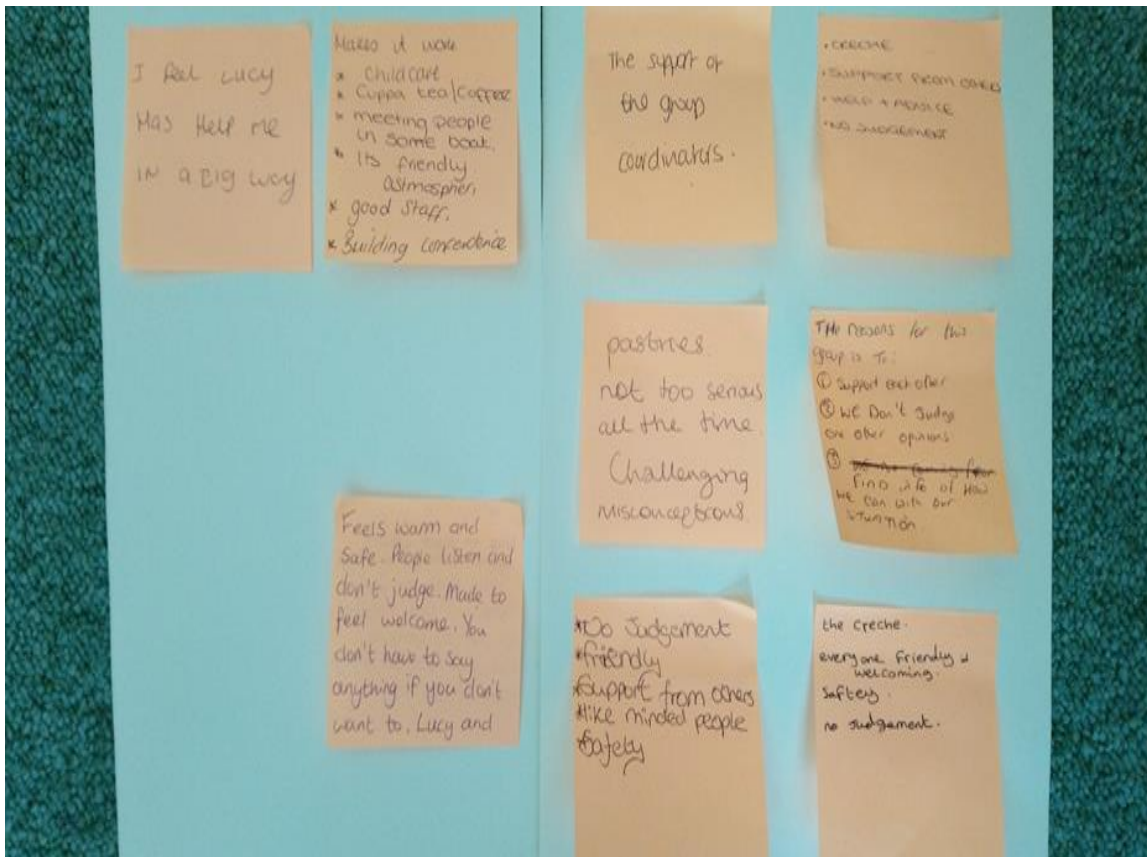 I feel Lucy
Has Help me
IN a BIG way
Makes it work
* Childcare
* Cuppa tea/Coffee
* meeting people
in same boat.
* Its friendly
astmospher,
* good staff.
* Building conferdence
The support of
the group
coordinators.
• CRECHE
• SUPPORT FROM OTHERS
• HELP + ADVICE
• NO JUDGEMENT
pastries.
not too serious
all the time.
Challenging
misconceptions.
THe reasons for this
group is To:
① Support each other
② We Don't Judge
on other opinions
③
Find info of How
we can with our
situation
Feels warm and
safe. People listen and
don't judge. Made to
feel welcome. You
don't have to say
anything if you don't
want to. Lucy and
*No Judgement
*friendly
*Support from others
*like minded people
*Safety
the creche.
everyone friendly &
welcoming.
saftey.
no judgement.